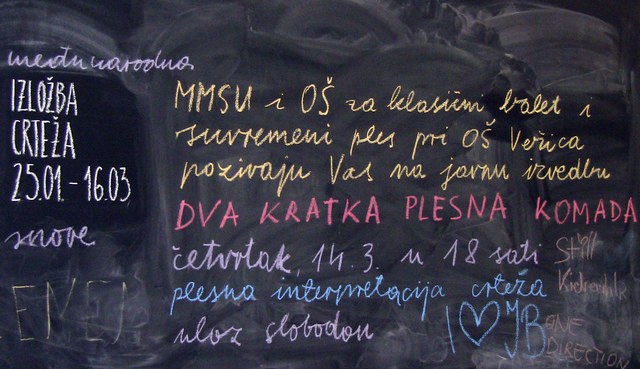 međunarodna
IZLOŽBA
CRTEŽA
25.01. - 16.03
snove
MMSU i OŠ za klasični balet i
suvremeni ples pri OŠ Vežica
pozivaju Vas na javnu izvedbu
DVA KRATKA PLESNA KOMADA
četvrtak, 14.3. u 18 sati
plesna interpretacija crteža
ulaz slobodan
I ♡ JB
Still
ONE
DIRECTION